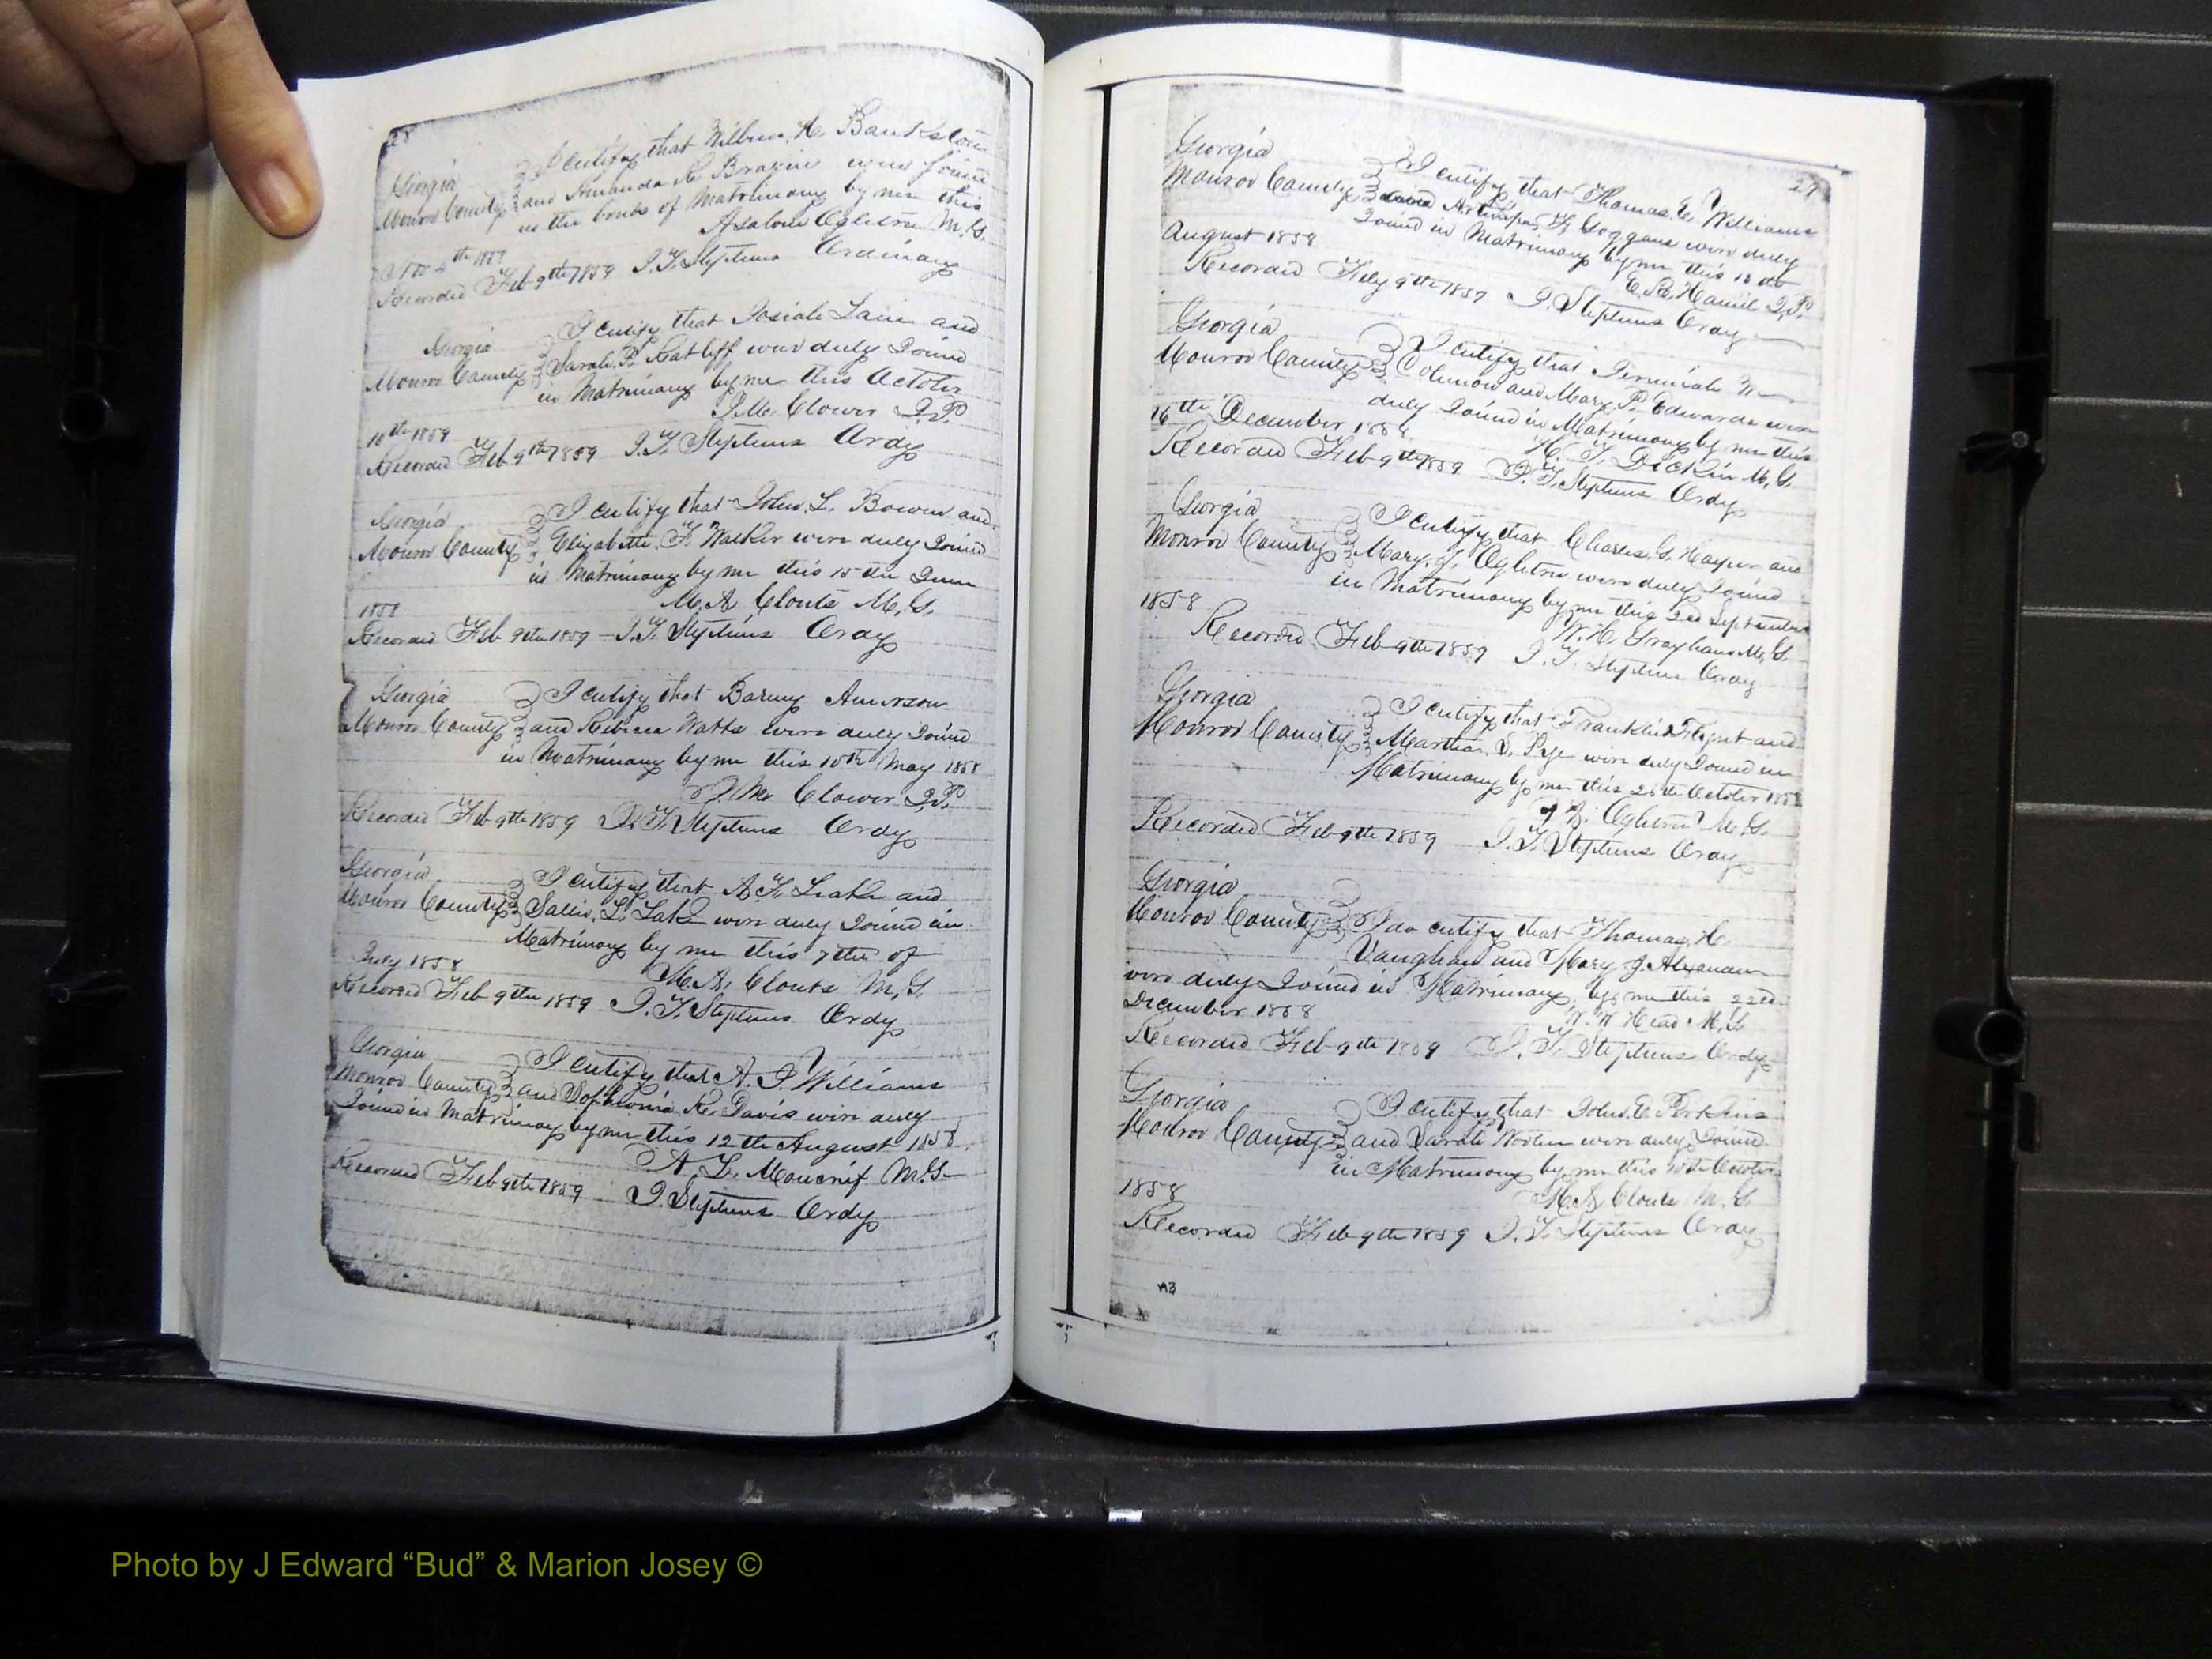 28
I certify that Wilbur H. Bankston
Georgia
Monroe County and Amanda C. Braziel were joined
in the bonds of Matrimony by me this
Asalom Ogletree M.G.
4th 1858
Recorded Feb 9th 1859 J.T. Stephens Ordinary
Georgia I certify that Josiah Lain and
Monroe County Sarah P. Ratliff were duly Joined
in Matrimony by me this October
J.M. Clower J.P.
10th 1859
Recorded Feb 9th 1859 J.T. Stephens Ordy
Georgia I certify that John L. Bowen and
Monroe County Elizabeth F. Walker were duly Joined
in Matrimony by me this 15th June
M. A. Clouts M.G.
1858
Recorded Feb 9th 1859 J.T. Stephens Ordy
Georgia I certify that Barney Amerson
Monroe County and Rebicca Watts were duly Joined
in Matrimony by me this 10th May 1858
J. M. Clower J.P.
Recorded Feb 9th 1859 J.T. Stephens Ordy
Georgia I certify that A. F. Leake and
Monroe County Sallie L. Lake were duly Joined in
Matrimony by me this 7th of
July 1858
M. A. Clouts M.G.
Recorded Feb 9th 1859 J.T. Stephens Ordy
Georgia I certify that A. J. Williams
Monroe County and Sophronia K. Davis were duly
Joined in Matrimony by me this 12th August 1858
A. L. Moncrief M.G.
Recorded Feb 9th 1859 J. Stephens Ordy
29
Georgia I certify that Thomas E. Williams
Monroe County F. Goggans were duly
Joined in Matrimony by me this 15th
August 1858
E. R. Hamil J.P.
Recorded Feby 9th 1859 J. Stephens Orday
Georgia I certify that Jerimiah
Monroe County and Mary P. Edwards were
duly Joined in Matrimony by me this
16th December 1858
H. T. Dickin M.G.
Recorded Feb 9th 1859 J.T. Stephens Ordy
Georgia I certify that Charles G. Hayes and
Monroe County Mary J. Ogletree were duly Joined
in Matrimony by me this 2nd September
1858
W. H. Grayham M.G.
Recorded Feb 9th 1859 J.T. Stephens Orday
Georgia I certify that Franklin Flynt and
Monroe County Martha S. Pye were duly Joined in
Matrimony by me this 28th October 1858
Ogletree M.G.
Recorded Feb 9th 1859 J.T. Stephens Orday
Georgia
Monroe County I do certify that Thomas H.
Vaughan and Mary J. Alexander
were duly Joined in Matrimony by me this 22nd
December 1858
W. W. Head M.G.
Recorded Feb 9th 1859 J.T. Stephens Ordy
Georgia I certify that John E. Perkins
Monroe County and Sarah Worten were duly Joined
in Matrimony by me this October
1858
M. A. Clouts M.G.
Recorded Feb 9th 1859 J.T. Stephens Orday
Photo by J Edward “Bud” & Marion Josey ©